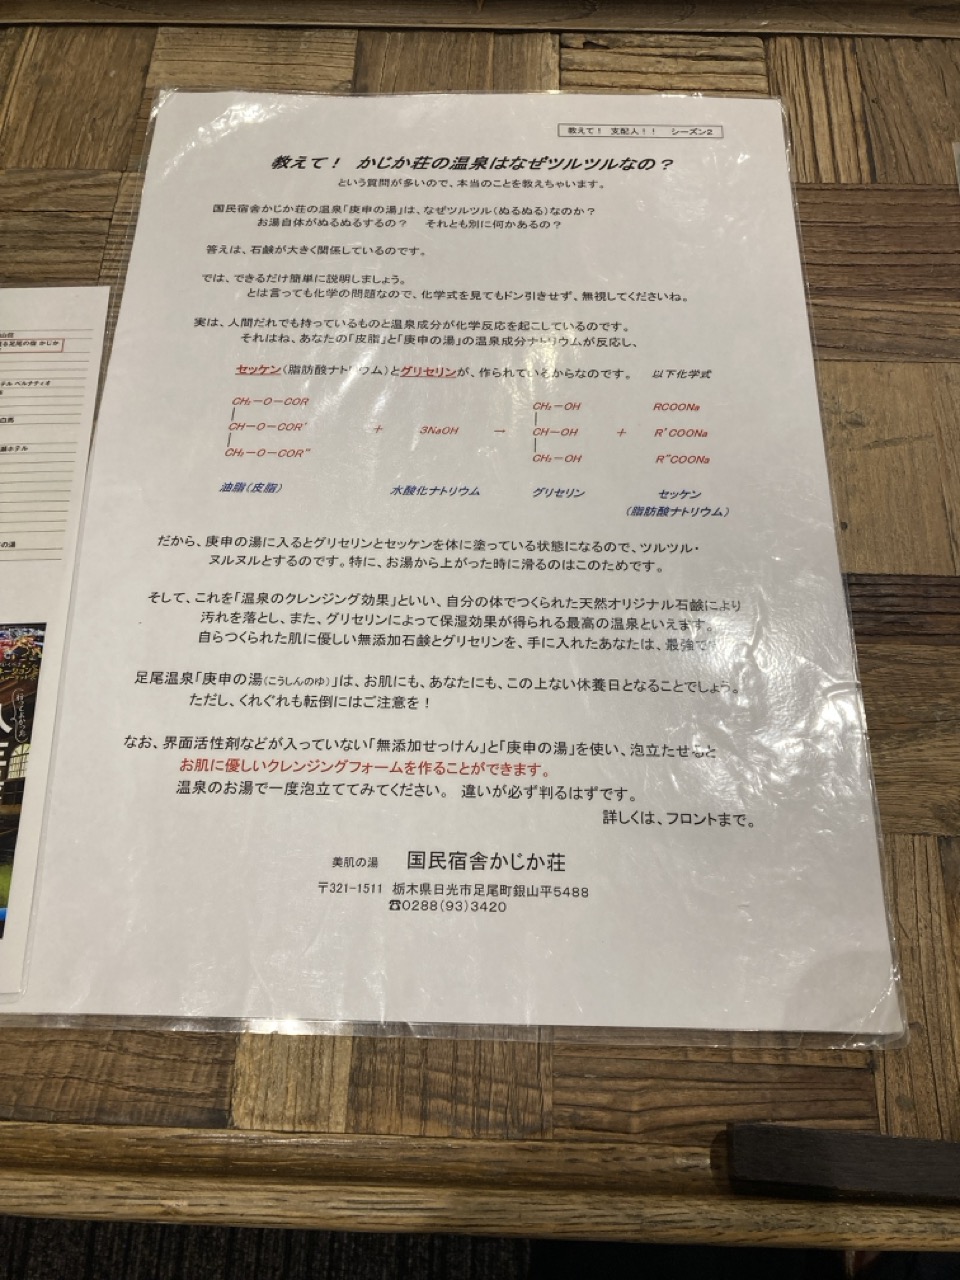 教えて！ 支配人！！ シーズン2
教えて！ かじか荘の温泉はなぜツルツルなの？
という質問が多いので、本当のことを教えちゃいます。
国民宿舎かじか荘の温泉「庚申の湯」は、なぜツルツル（ぬるぬる）なのか？
お湯自体がぬるぬるするの？ それとも別に何かあるの？
答えは、石鹸が大きく関係しているのです。
では、できるだけ簡単に説明しましょう。
とは言っても化学の問題なので、化学式を見てもドン引きせず、無視してくださいね。
実は、人間だれでも持っているものと温泉成分が化学反応を起こしているのです。
それはね、あなたの「皮脂」と「庚申の湯」の温泉成分ナトリウムが反応し、
セッケン（脂肪酸ナトリウム）とグリセリンが、作られているからなのです。 以下化学式
CH₂－O－COR CH₂－OH RCOONa
CH－O－COR' ＋ 3NaOH → CH－OH ＋ R'COONa
CH₂－O－COR" CH₂－OH R"COONa
油脂（皮脂） 水酸化ナトリウム グリセリン セッケン
（脂肪酸ナトリウム）
だから、庚申の湯に入るとグリセリンとセッケンを体に塗っている状態になるので、ツルツル・
ヌルヌルとするのです。特に、お湯から上がった時に滑るのはこのためです。
そして、これを「温泉のクレンジング効果」といい、自分の体でつくられた天然オリジナル石鹸により
汚れを落とし、また、グリセリンによって保湿効果が得られる最高の温泉といえます。
自らつくられた肌に優しい無添加石鹸とグリセリンを、手に入れたあなたは、最強で
足尾温泉「庚申の湯（こうしんのゆ）」は、お肌にも、あなたにも、この上ない休養日となることでしょう。
ただし、くれぐれも転倒にはご注意を！
なお、界面活性剤などが入っていない「無添加せっけん」と「庚申の湯」を使い、泡立たせると
お肌に優しいクレンジングフォームを作ることができます。
温泉のお湯で一度泡立ててみてください。 違いが必ず判るはずです。
詳しくは、フロントまで。
美肌の湯 国民宿舎かじか荘
〒321-1511 栃木県日光市足尾町銀山平5488
☎0288(93)3420